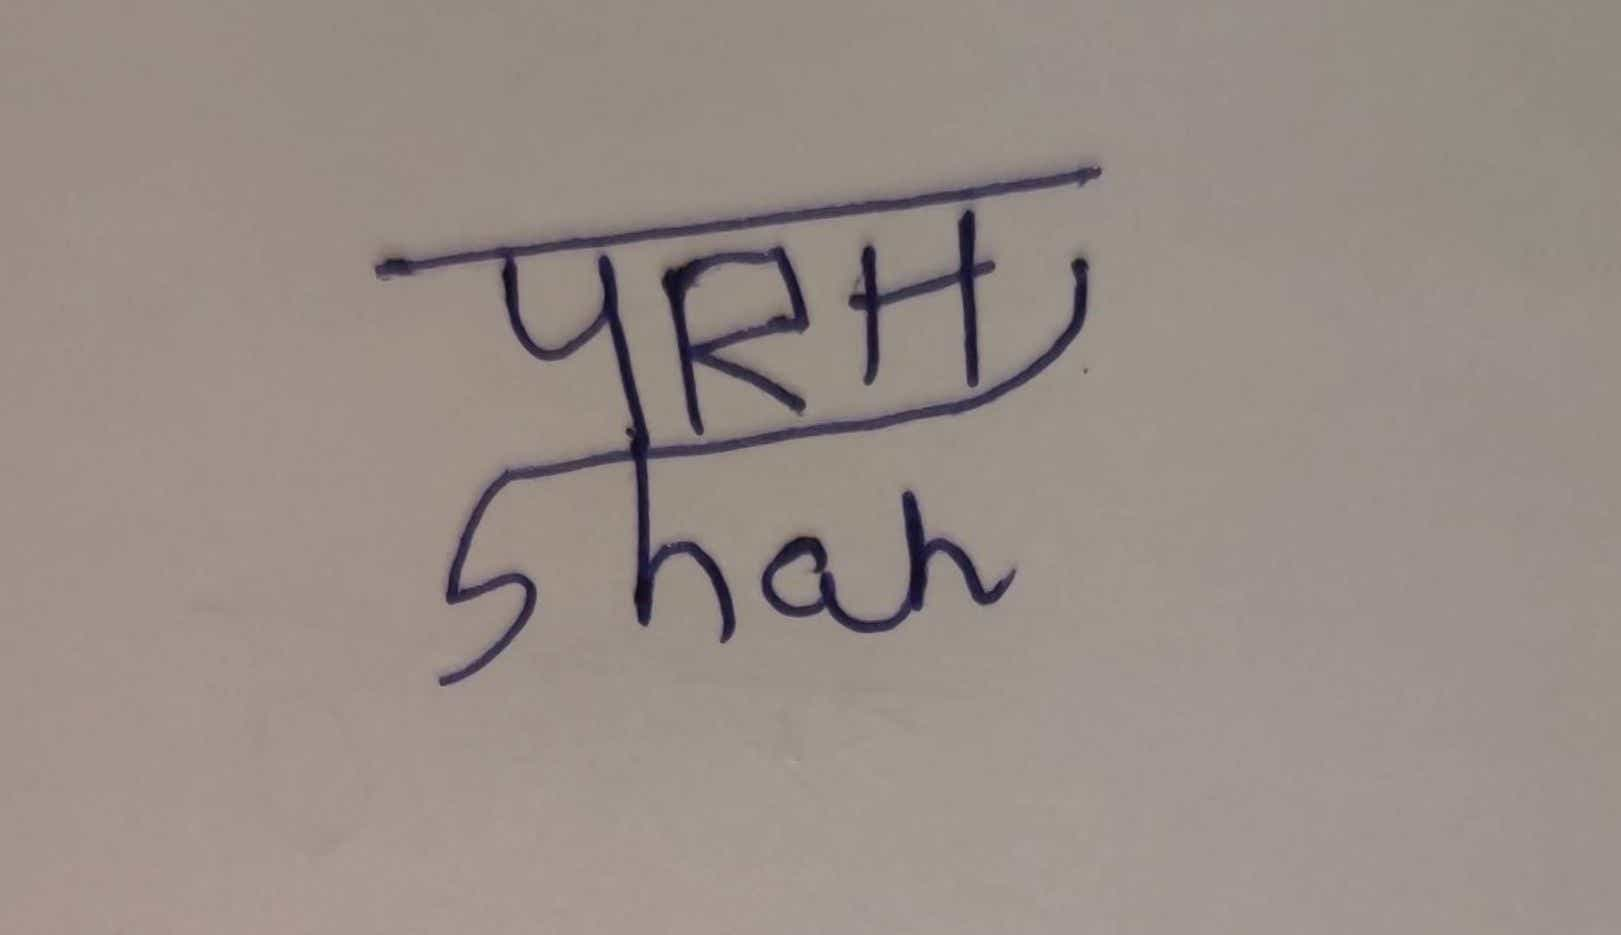 YRH
Shah